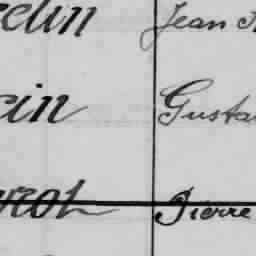 elin Jean
cin Gusta
rrot Pierre